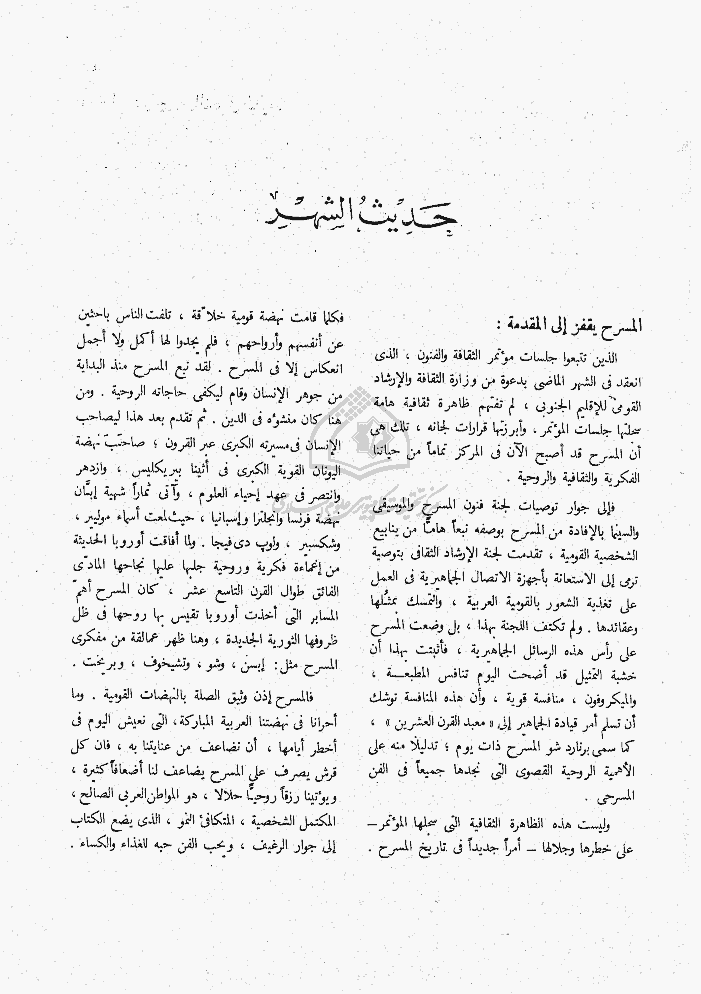 حديث الشهر
المسرح يقفز إلى المقدمة :
الذين تتبعوا جلسات مؤتمر الثقافة والفنون ، الذى
انعقد فى الشهر الماضى بدعوة من وزارة الثقافة والإرشاد
القومى للإقليم الجنوبى ، لم تفتهم ظاهرة ثقافية هامة
سجلتها جلسات المؤتمر ، وأبرزتها قرارات لجانه ، تلك هى
أن المسرح قد أصبح الآن فى المركز تماماً من حياتنا
الفكرية والثقافية والروحية .
فإلى جوار توصيات لجنة فنون المسرح والموسيقى
والسينما بالإفادة من المسرح بوصفه نبعاً هامًّا من ينابيع
الشخصية القومية ، تقدمت لجنة الإرشاد الثقافى بتوصية
ترمى إلى الاستعانة بأجهزة الاتصال الجماهيرية فى العمل
على تغذية الشعور بالقومية العربية ، والتمسك بمثُلها
وعقائدها . ولم تكتف اللجنة بهذا ، بل وضعت المسرح
على رأس هذه الرسائل الجماهيرية ، فأثبتت بهذا أن
خشبة التمثيل قد أضحت اليوم تنافس المطبعة ،
والميكروفون ، منافسة قوية ، وأن هذه المنافسة توشك
أن تسلم أمر قيادة الجماهير إلى « معبد القرن العشرين » ،
كما سمى برنارد شو المسرح ذات يوم ؛ تدليلا منه على
الأهمية الروحية القصوى التى نجدها جميعاً فى الفن
المسرحى .
وليست هذه الظاهرة الثقافية التى سجلها المؤتمر—
على خطرها وجلالها — أمراً جديداً فى تاريخ المسرح .
فكلما قامت نهضة قومية خلاّقة ، تلفت الناس باحثين
عن أنفسهم وأرواحهم ، فلم يجدوا لها أكمل ولا أجمل
انعكاس إلا فى المسرح . لقد نبع المسرح منذ البداية
من جوهر الإنسان وقام ليكفى حاجاته الروحية . ومن
هنا كان منشؤه فى الدين . ثم تقدم بعد هذا ليصاحب
الإنسان فى مسيرته الكبرى عبر القرون ؛ صاحبَ نهضة
اليونان القوية الكبرى فى أثينا بيريكليس ، وازدهر
وانتصر فى عهد إحياء العلوم ، وآتى ثماراً شهية إبَّان
نهضة فرنسا وانجلترا وإسبانيا ، حيث لمعت أسماء موليير ،
وشكسبير ، ولوب دى فيجا . ولما أفاقت أوروبا الحديثة
من إغماءة فكرية وروحية جلبها عليها نجاحها المادّى
الفائق طوال القرن التاسع عشر ، كان المسرح أهمّ
المسابر التى أخذت أوروبا تقيس بها روحها فى ظل
ظروفها الثورية الجديدة ، وهنا ظهر عمالقة من مفكرى
المسرح مثل : إبسن ، وشو ، وتشيخوف ، وبريخت .
فالمسرح إذن وثيق الصلة بالنهضات القومية . وما
أحرانا فى نهضتنا العربية المباركة، التى نعيش اليوم فى
أخطر أيامها ، أن نضاعف من عنايتنا به ، فان كل
قرش يصرف على المسرح يضاعف لنا أضعافاً كثيرة ،
ويؤتينا رزقاً روحيًّا حلالا ، هو المواطن العربى الصالح ،
المكتمل الشخصية ، المتكافئ النمو ، الذى يضع الكتاب
إلى جوار الرغيف ، ويحب الفن حبه للغذاء والكساء .